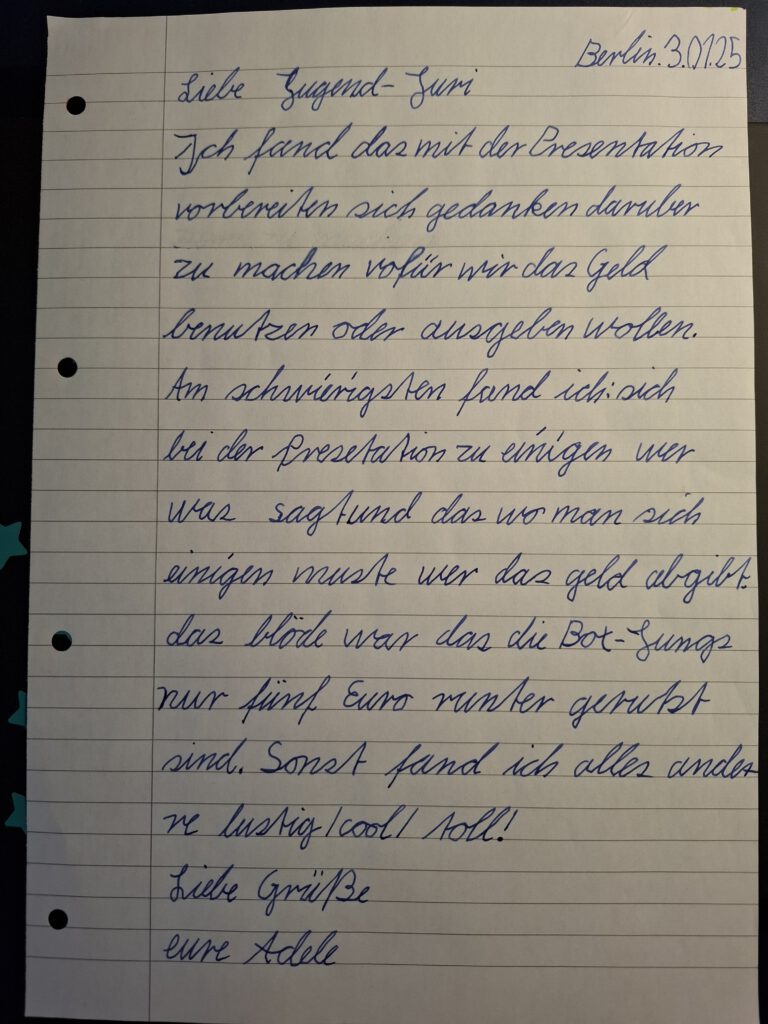 Berlin.3.01.25
Liebe Jugend-Juri
Ich fand das mit der Presentation
vorbereiten sich gedanken daruber
zu machen vofür wir das Geld
benutzen oder ausgeben wollen.
Am schwierigsten fand ich: sich
bei der Presetation zu einigen wer
was sagt und das wo man sich
einigen muste wer das geld abgibt.
das blöde war das die Box-Jungs
nur fünf Euro runter gerukt
sind. Sonst fand ich alles ande-
re lustig/cool/toll!
Liebe Grüße
eure Adele